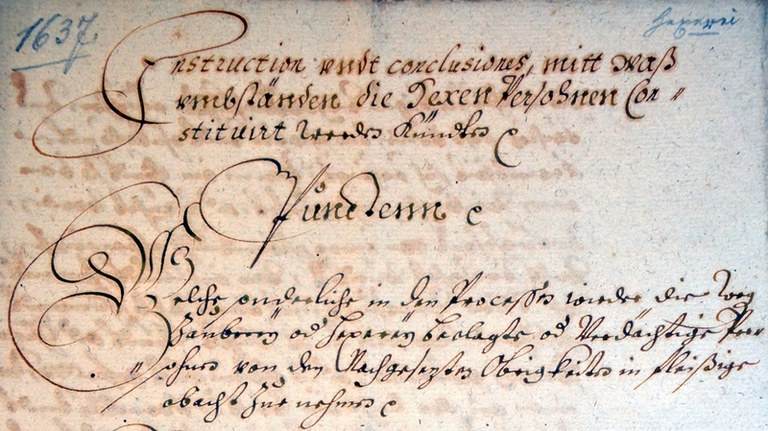 1637.
Hexerei
Instruction undt conclusiones, mitt waß
umbständen die Hexen Persohnen Con〃
stituirt werden Kündten
Puncten
Welche sonderliche in den Processen wieder die weg
Zauberey od Hexerey beclagte, od Verdächtige Per
sohnen von den Nachgesezten Obrigkeiten in fleißige
obacht Zue nehmen